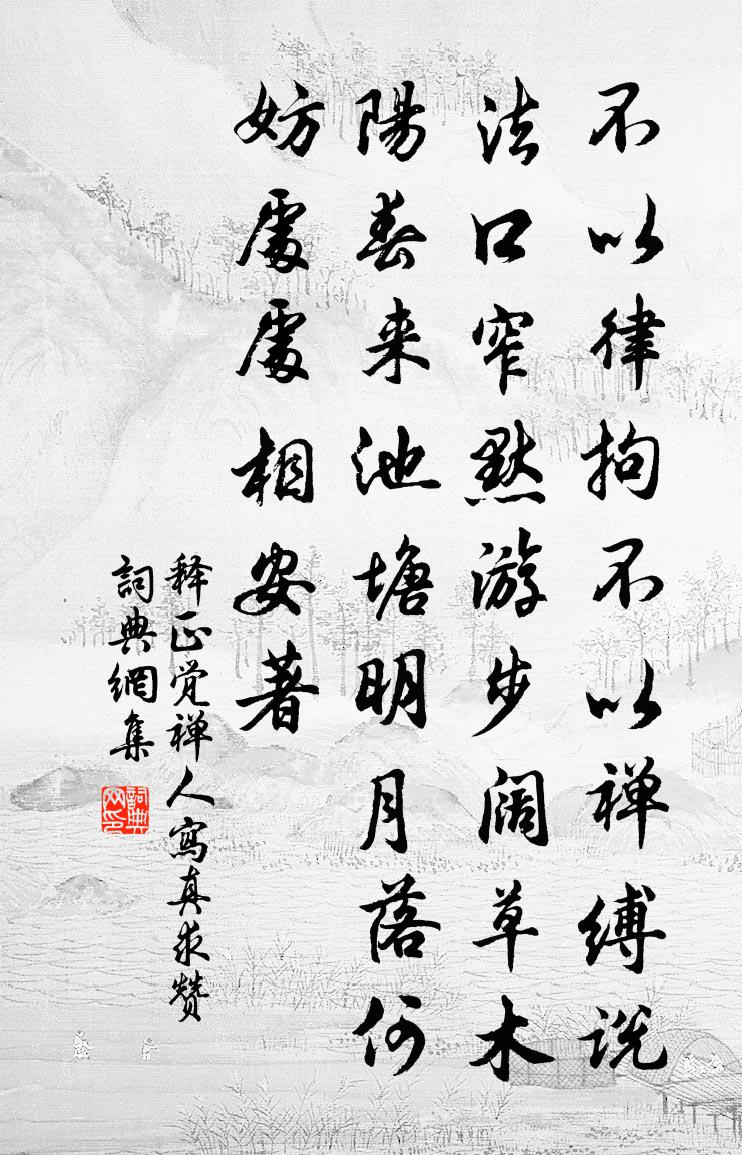 不以律拘不以禅缚说
法口窄默游步阔草木
陽春来池塘明月落何
妨處處相安著
释正觉禅人寫真求赞
詞典網集
詞典网印